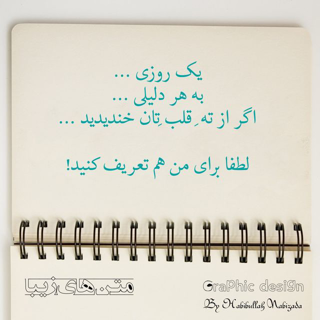 یک روزی ...
به هر دلیلی ...
اگر از تهِ قلب تِان خندیدید ...
لطفا برای من هم تعریف کنید!
متن های زیبا
GraPhic desi9n
By Habibullah Nabizada